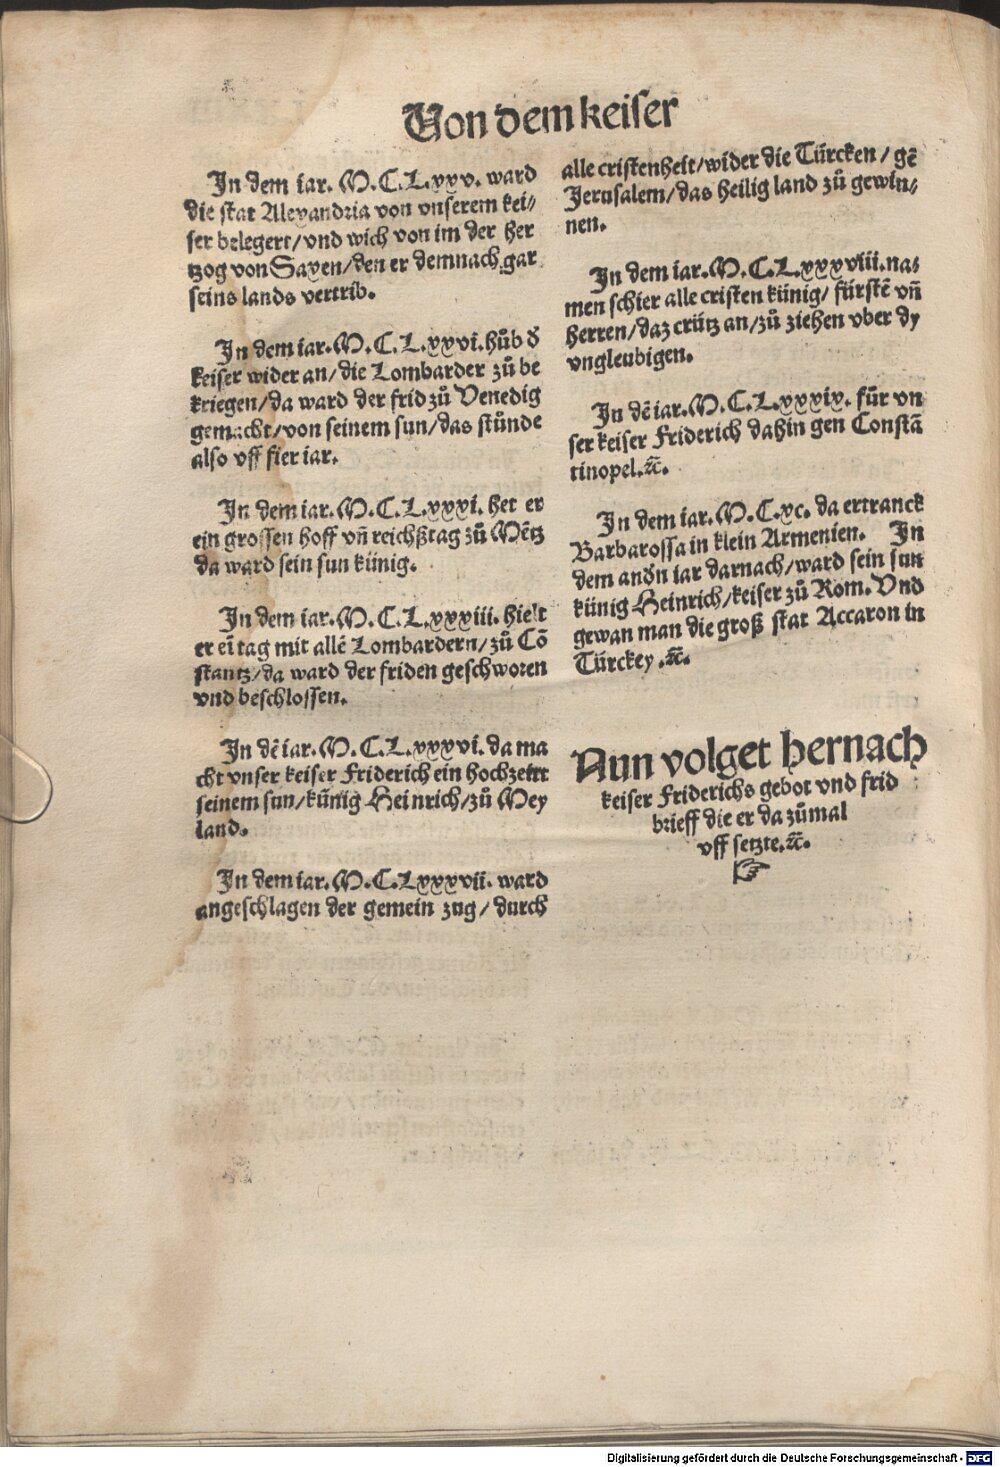 Von dem keiser
In dem iar. M.C.L.xxv. ward
die stat Alexandria von vnserem kei⸗
ser belegert/vnd wich von im der her
tzog von Saxen/den er demnach gar
seins lands vertrib.
In dem iar. M.C.L.xxvi. hůb d̕
keiser wider an/die Lombarder zů be
kriegen/da ward der frid zů Venedig
gemacht/von seinem sun/das stůnde
also vff fier iar.
In dem iar. M.C.L.xxxi. het er
ein grossen hoff vñ reichßtag zů Mẽtz
da ward sein sun künig.
In dem iar. M.C.L.xxxiii. hielt
er eĩ tag mit allẽ Lombardern/zů Cõ
stantz/da ward der friden geschworen
vnd beschlossen.
In dẽ iar. M.C.L.xxxvi. da ma
cht vnser keiser Friderich ein hochzeitt
seinem sun/künig Heinrich/zů Mey
land.
In dem iar. M.C.Lxxxvii. ward
angeschlagen der gemein zug/durch
alle cristenheit/wider die Türcken/gẽ
Jerusalem/das heilig land zů gewin⸗
nen.
In dem iar. M.C.L.xxxviii. na⸗
men schier alle cristen künig/fürstẽ vñ
herren/daz crütz an/zů ziehen vber dy
vngleubigen.
In dẽ iar. M.C.L.xxxix. fůr vn
ser keiser Friderich dahin gen Constã
tinopel.ꝛc̃.
In dem iar. M.C.xc. da ertranck
Barbarossa in klein Armenien. In
dem and̕n iar darnach/ward sein sun
künig Heinrich/keiser zů Rom. Vnd
gewan man die groß stat Accaron in
Türckey.ꝛc̃.
Nun volget hernach
keiser Friderichs gebot vnd frid
brieff die er da zůmal
vff setzte.ꝛc̃.
☞
Digitalisierung gefördert durch die Deutsche Forschungsgemeinschaft - DFG